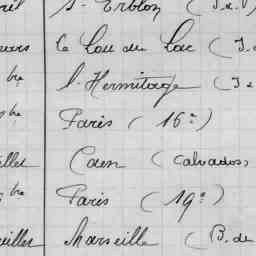 St-Erblon (I.&V)
Le Lou du Lac (I.
bre l'Hermitage (I &
bre Paris (16e)
illet Caen (Calvados)
bre Paris (19e)
uillet Marseille (B. de